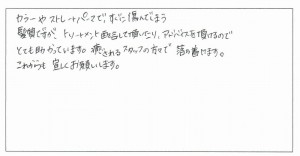 カラーやストレートパーマで、すごく傷んでしまう
髪質ですが、トリートメント配合して頂いたり、アドバイスを頂けるので
とても助かっています。癒されるスタッフの方々で落ち着けます。
これからも宜しくお願いします。